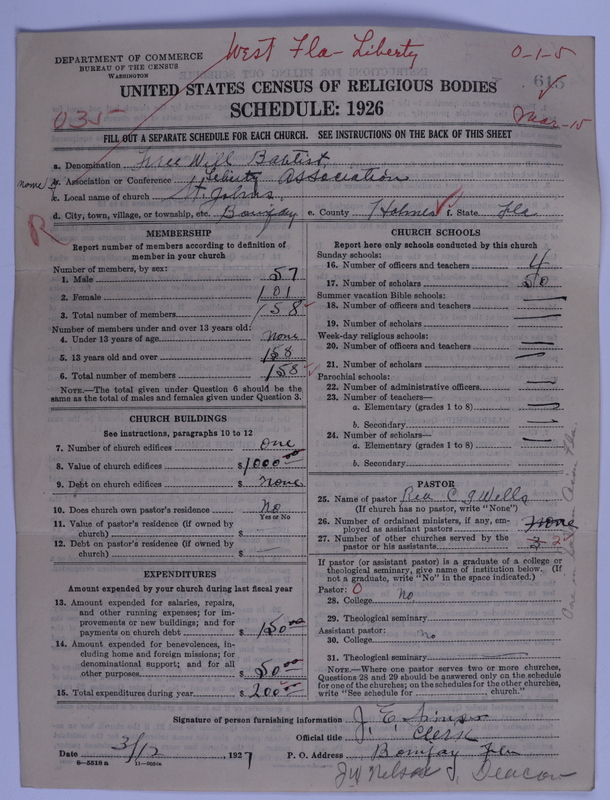 West Fla - Liberty
0-1-5
DEPARTMENT OF COMMERCE
BUREAU OF THE CENSUS
WASHINGTON
615
UNITED STATES CENSUS OF RELIGIOUS BODIES
035
SCHEDULE: 1926
Mar-15
FILL OUT A SEPARATE SCHEDULE FOR EACH CHURCH. SEE INSTRUCTIONS ON THE BACK OF THIS SHEET
a. Denomination Free Will Baptist
none b. Association or Conference Liberty Association
c. Local name of church St. Johns
d. City, town, village, or township, etc. Bonifay e. County Holmes f. State Fla
R
MEMBERSHIP
Report number of members according to definition of member in your church
Number of members, by sex:
1. Male 57
2. Female 101
3. Total number of members 158
Number of members under and over 13 years old:
4. Under 13 years of age none
5. 13 years old and over 158
6. Total number of members 158
NOTE.—The total given under Question 6 should be the same as the total of males and females given under Question 3.
CHURCH BUILDINGS
See instructions, paragraphs 10 to 12
7. Number of church edifices one
8. Value of church edifices $1000 00
9. Debt on church edifices $ none
10. Does church own pastor's residence No
Yes or No
11. Value of pastor's residence (if owned by
church) $
12. Debt on pastor's residence (if owned by
church) $
EXPENDITURES
Amount expended by your church during last fiscal year
13. Amount expended for salaries, repairs,
and other running expenses; for im-
provements or new buildings; and for
payments on church debt $ 150 00
14. Amount expended for benevolences, in-
cluding home and foreign missions; for
denominational support; and for all
other purposes $ 50 00
15. Total expenditures during year $ 200
CHURCH SCHOOLS
Report here only schools conducted by this church
Sunday schools:
16. Number of officers and teachers 4
17. Number of scholars 50
Summer vacation Bible schools:
18. Number of officers and teachers
19. Number of scholars
Week-day religious schools:
20. Number of officers and teachers
21. Number of scholars
Parochial schools:
22. Number of administrative officers
23. Number of teachers—
a. Elementary (grades 1 to 8)
b. Secondary
24. Number of scholars—
a. Elementary (grades 1 to 8)
b. Secondary
PASTOR
25. Name of pastor Rev C J Wells
(If church has no pastor, write "None")
26. Number of ordained ministers, if any, em-
ployed as assistant pastors none
27. Number of other churches served by the
pastor or his assistants 3 2
If pastor (or assistant pastor) is a graduate of a college or
theological seminary, give name of institution below. (If
not a graduate, write "No" in the space indicated.)
Pastor: 0
28. College No
29. Theological seminary
Assistant pastor:
30. College no
31. Theological seminary
NOTE.—Where one pastor serves two or more churches,
Questions 28 and 29 should be answered only on the schedule
for one of the churches; on the schedules for the other churches,
write "See schedule for church."
Signature of person furnishing information J. E.
Official title Clerk
Date 3/12 , 1927
P. O. Address Bonifay Fla
8-5518 a
JW Nelson Deacon